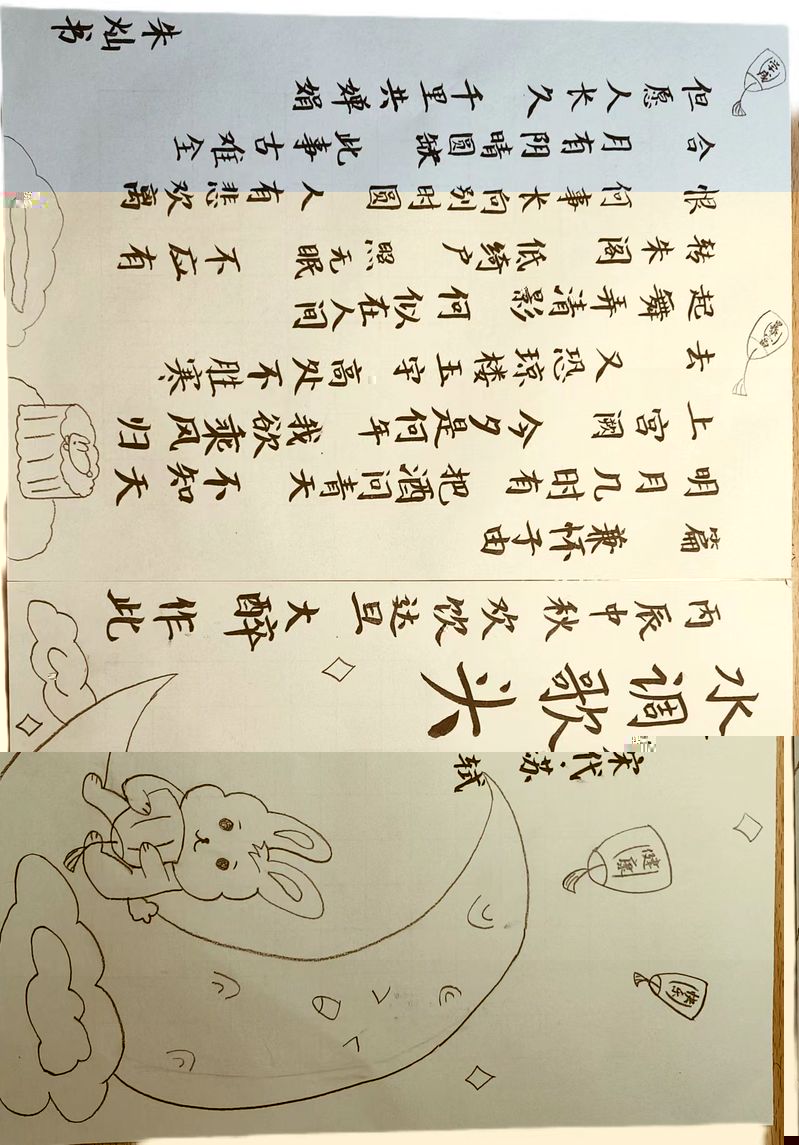 健康
快乐
宋代·苏轼
水调歌头
丙辰中秋 欢饮达旦 大醉 作此
篇 兼怀子由
明月几时有 把酒问青天 不知天
上宫阙 今夕是何年 我欲乘风归
去 又恐琼楼玉宇 高处不胜寒
起舞弄清影 何似在人间
转朱阁 低绮户 照无眠 不应有
恨 何事长向别时圆 人有悲欢离
合 月有阴晴圆缺 此事古难全
但愿人长久 千里共婵娟
朱灿书